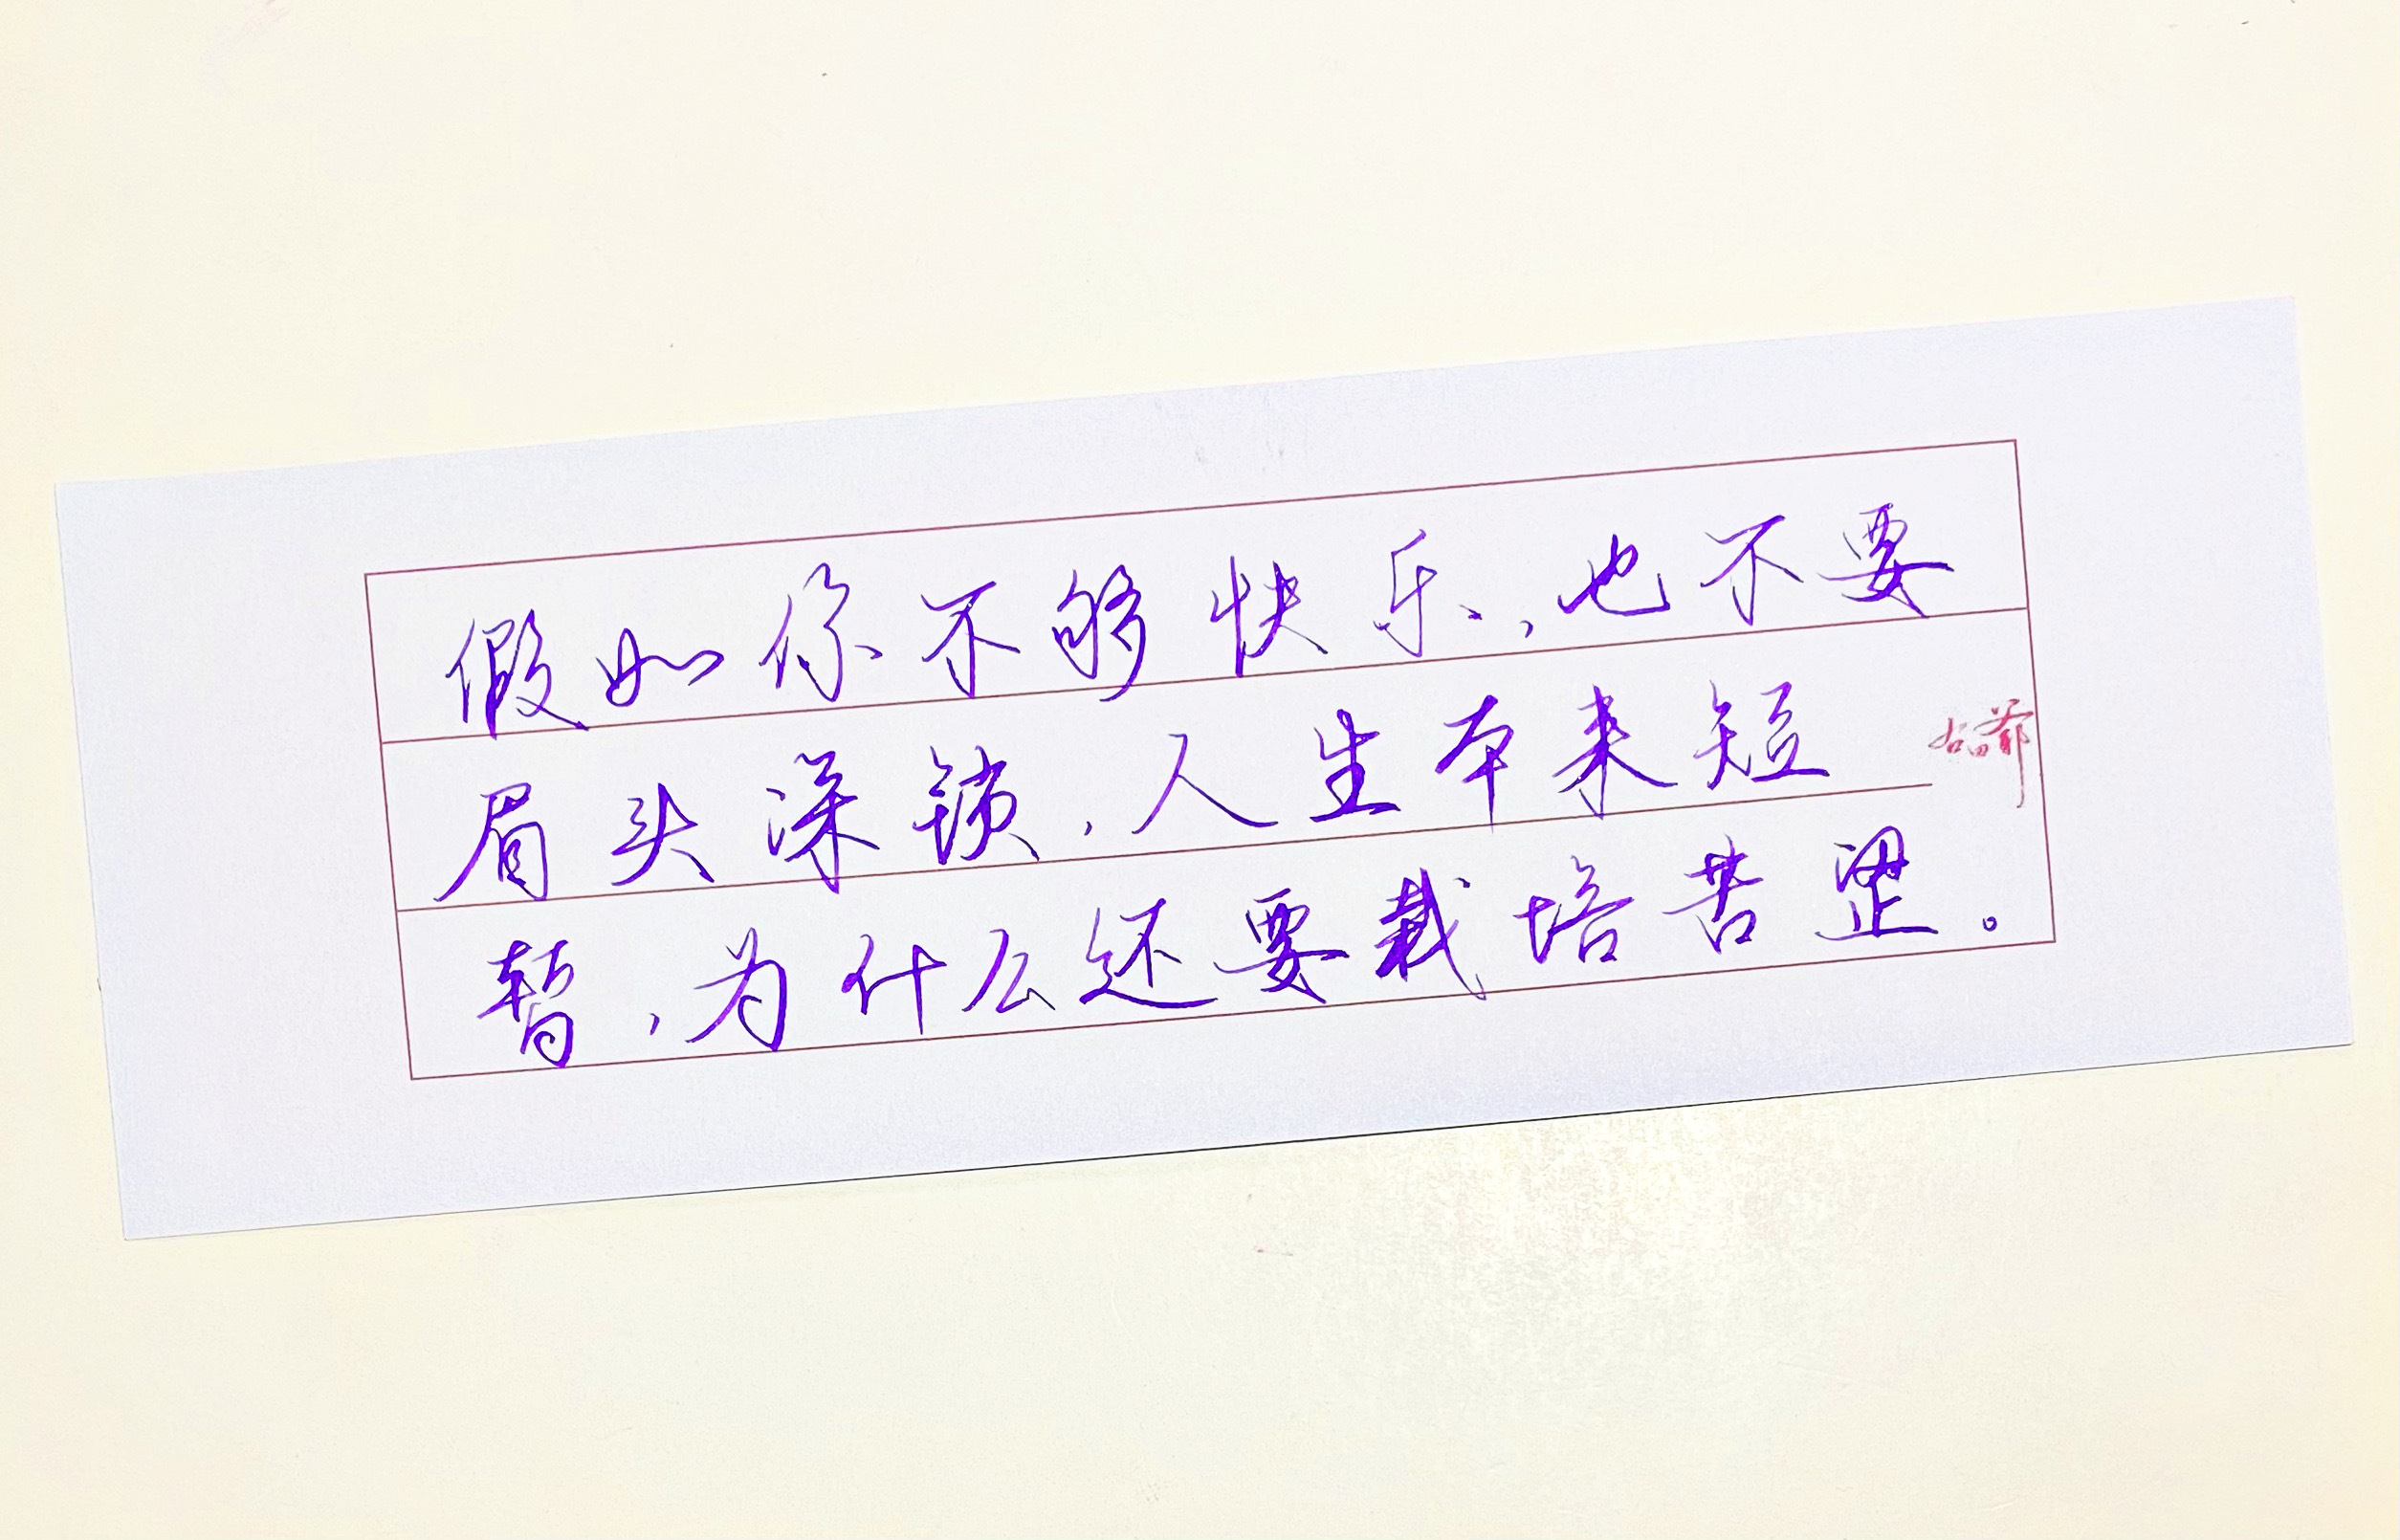 假如你不够快乐，也不要
眉头深锁，人生本来短
暂，为什么还要栽培苦涩。